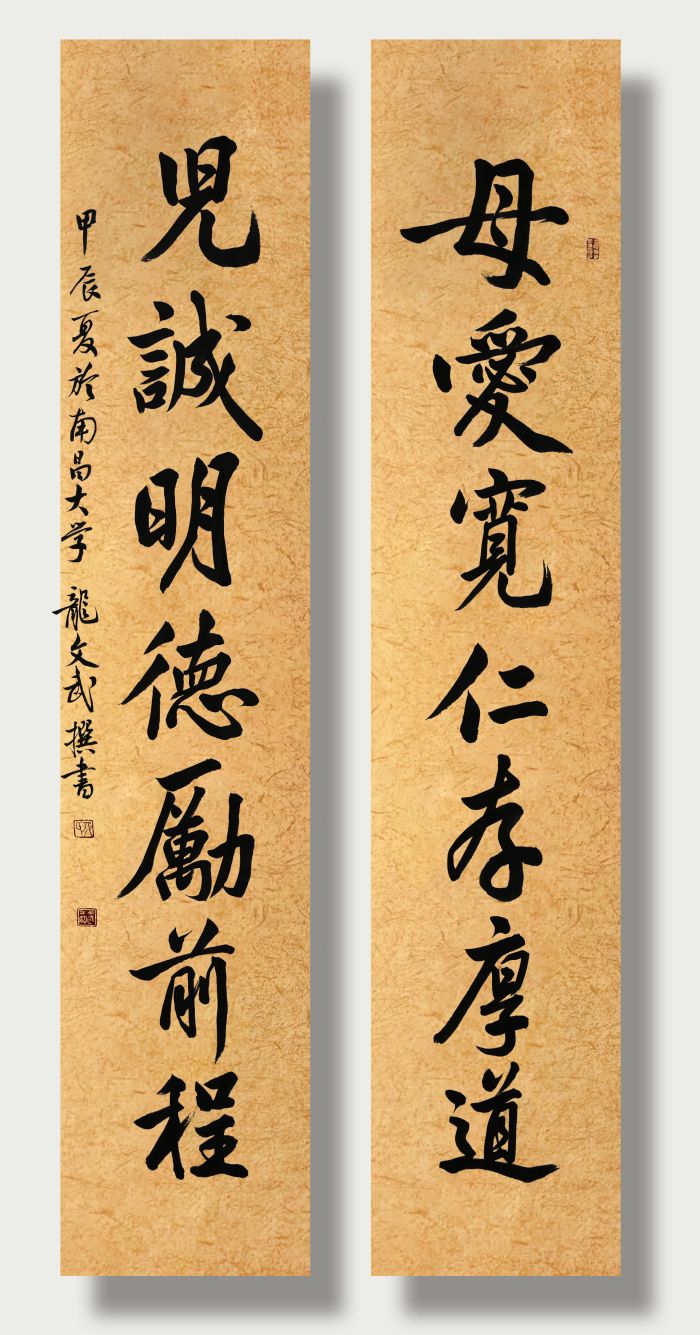 母愛寬仁存厚道
児誠明德勵前程
甲辰夏於南昌大学 龍文武撰書